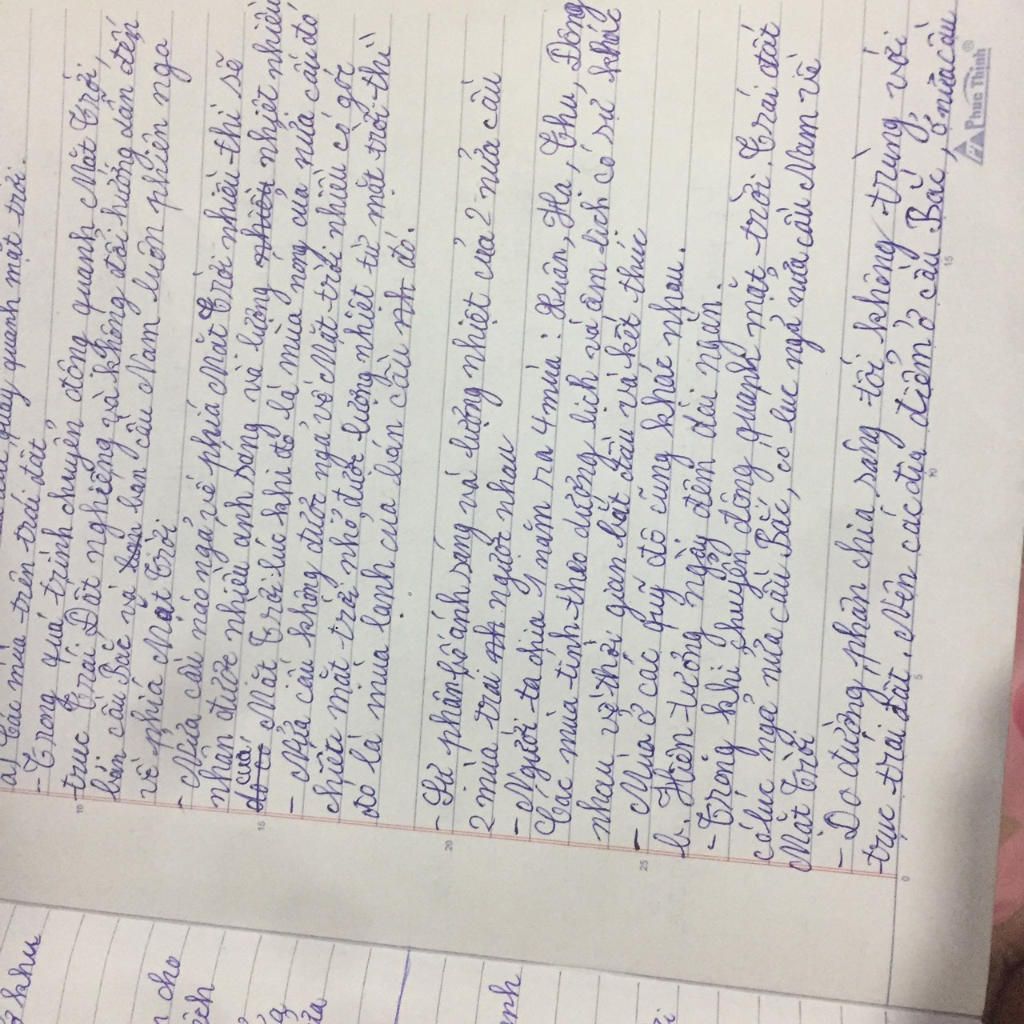 quay quanh mặt trời.
a) Các mùa trên trái đất
- Trong quá trình chuyển động quanh Mặt Trời,
trục Trái Đất nghiêng và không đổi hướng dẫn đến
bán cầu Bắc và bán cầu Nam luôn phiên ngả
về phía Mặt Trời
- Nửa cầu nào ngả về phía Mặt Trời nhiều thì sẽ
nhận được nhiều ánh sáng và lượng nhiệt nhiều
của Mặt Trời lúc khi đó là mùa nóng của nửa cầu đó
- Nửa cầu không được ngả về Mặt trời nhiều có góc
chiếu mặt trời nhỏ được lượng nhiệt từ mặt trời thì
đó là mùa lạnh của bán cầu đó.
- Sự phân bố ánh sáng và lượng nhiệt của 2 nửa cầu
2 mùa trái ngược nhau
- Người ta chia 1 năm ra 4 mùa: Xuân, Hạ, Thu, Đông
Các mùa tính theo dương lịch và âm lịch có sự khác
nhau về thời gian bắt đầu và kết thúc
- Mùa ở các quỹ đô cũng khác nhau.
b. Hiện tượng ngày đêm dài ngắn.
- Trong khi chuyển động quanh mặt trời. Trái đất
có lúc ngả nửa cầu Bắc, có lúc ngả nửa cầu Nam về
Mặt Trời
- Do đường phân chia sáng tối không trùng với
trục trái đất. Nên các địa điểm ở cầu Bắc, ở nửa cầu
Phuc Thinh®
10
15
20
25
0
5
10
15
khu
cho